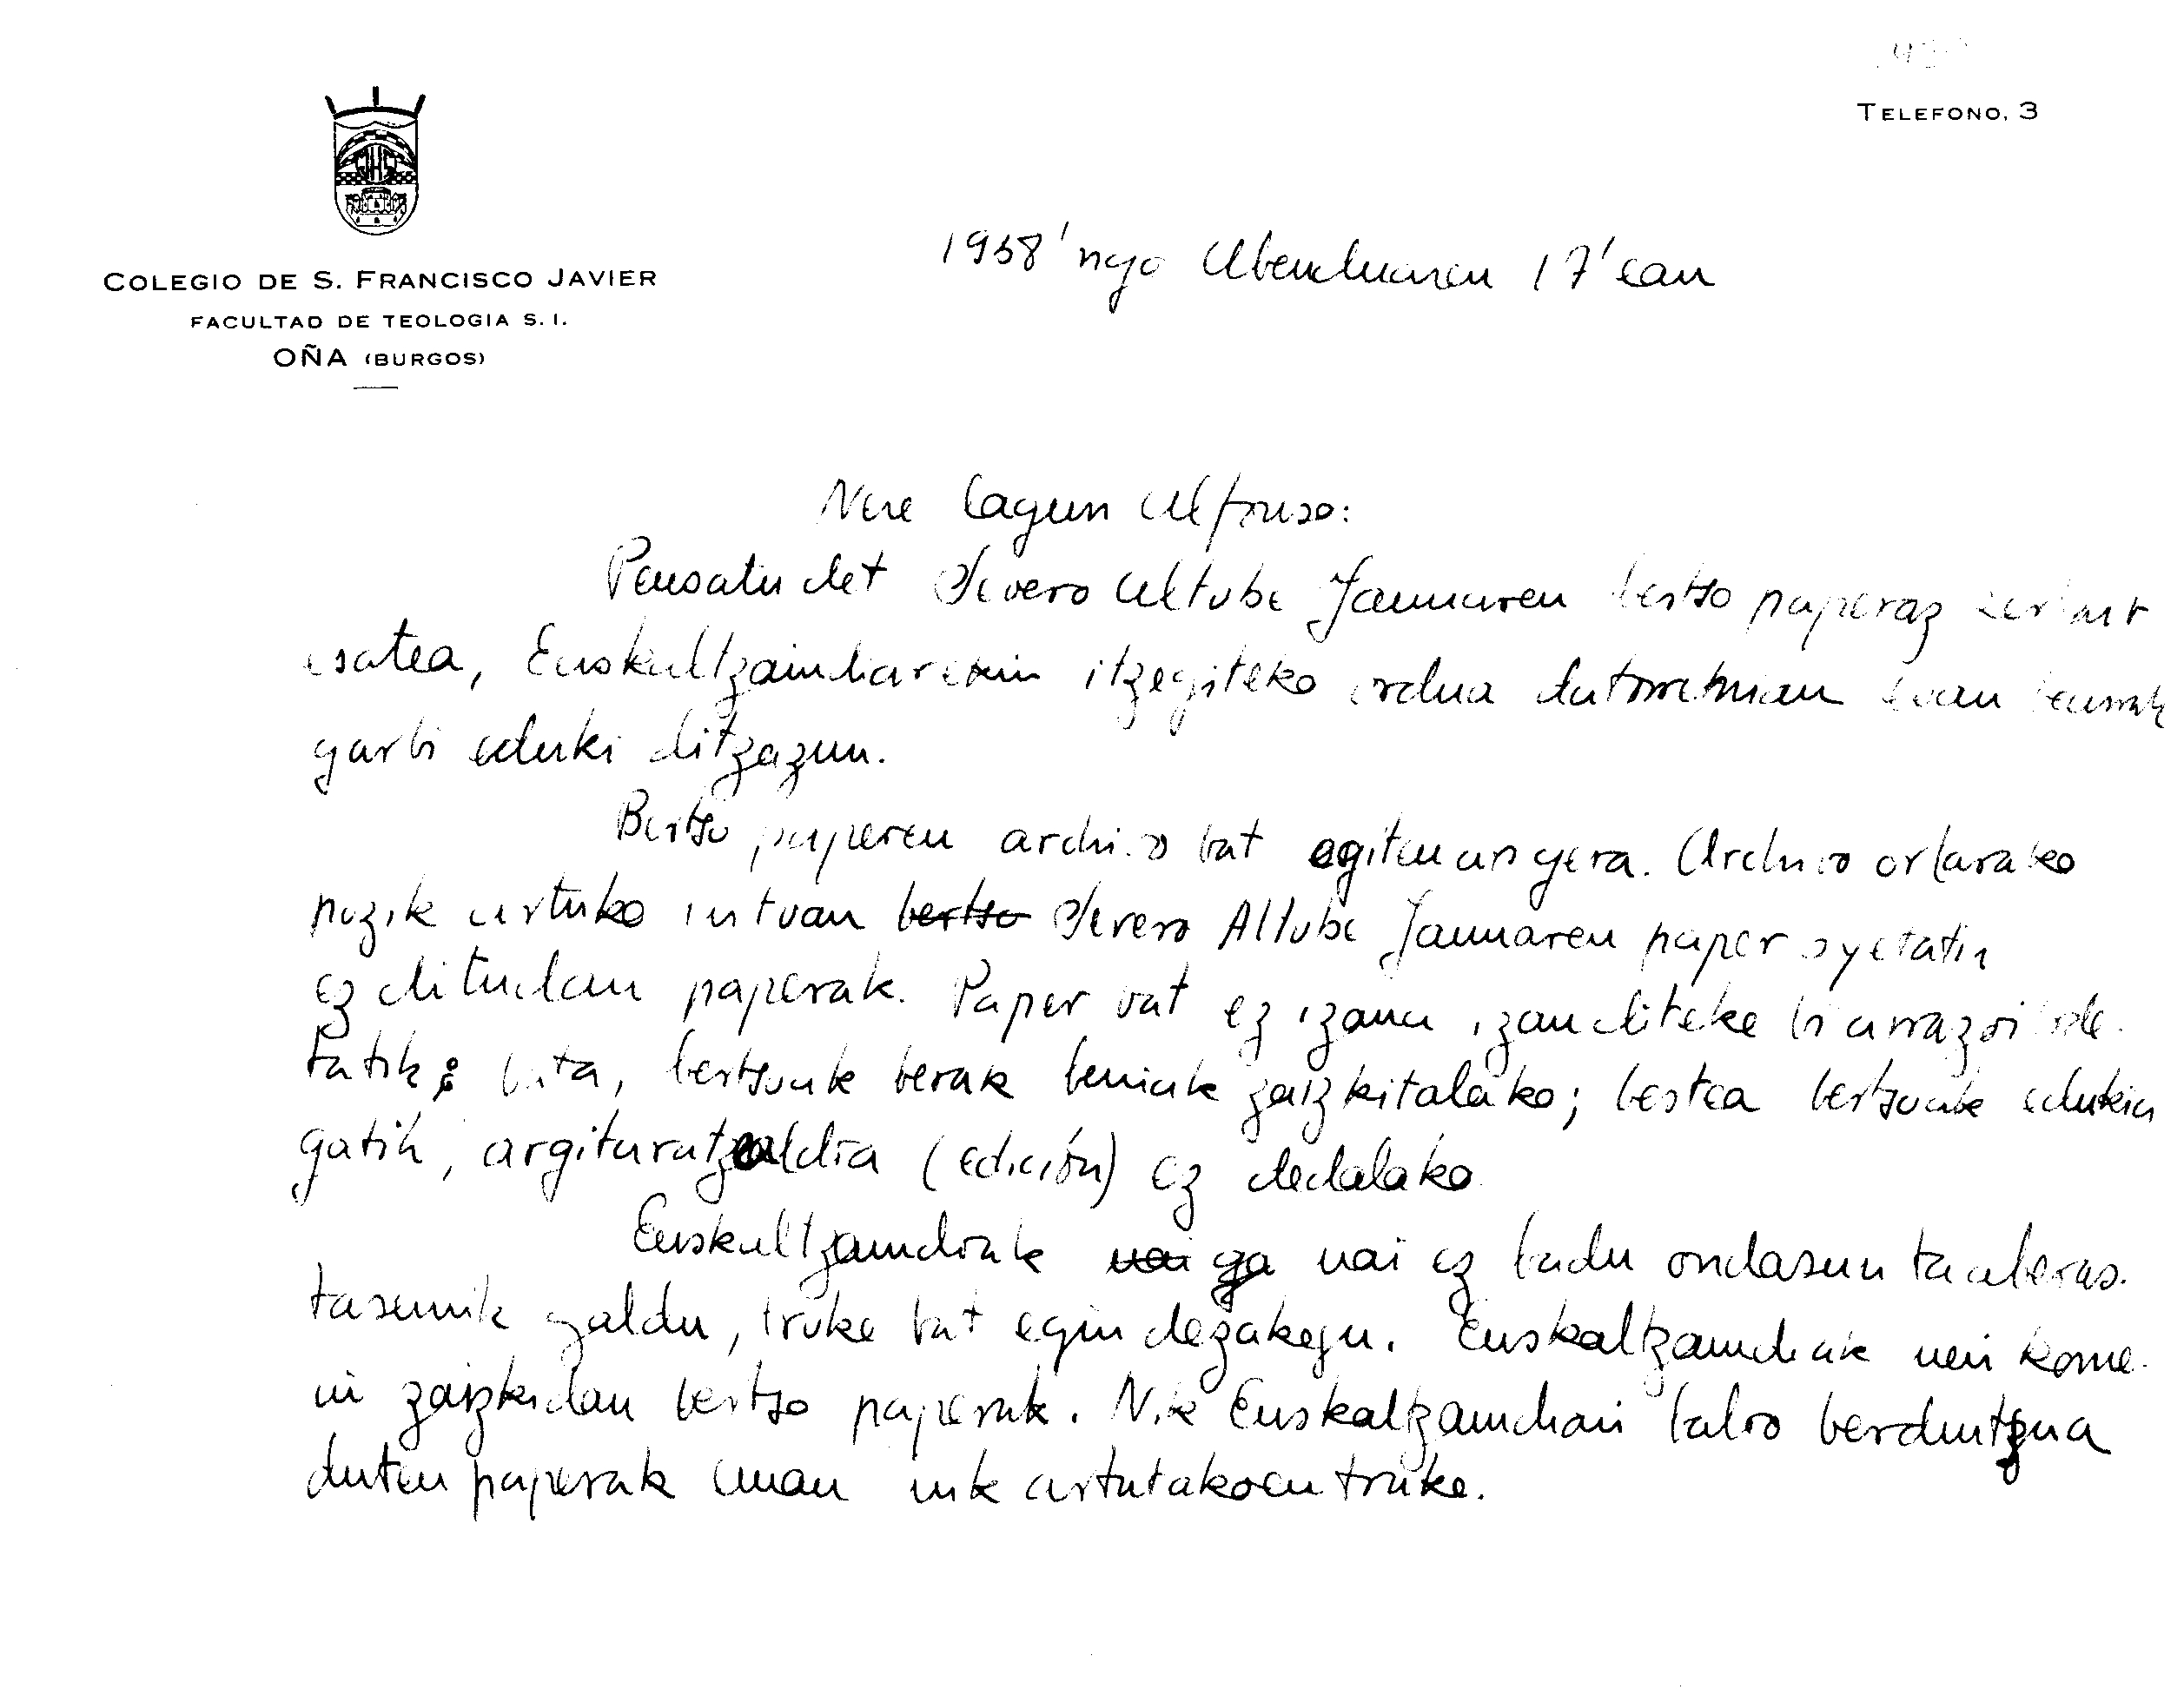 TELEFONO, 3
COLEGIO DE S. FRANCISCO JAVIER
FACULTAD DE TEOLOGIA S. I.
OÑA (BURGOS)
1958'ngo Abenduaren 17'ean
Nere lagun Alfonso:
Pensatu det Severo Altube Jaunaren bertso paperaz zerbait
esatea, Euskaltzaindiarekin itzegiteko ordua datorrenian
garbi eduki ditzazun.
Bertso paperen archivo bat egiten ari gera. Archivo ortarako
pozik artuko nituan bertso Severo Altube Jaunaren paper oyetatik
ez ditudan paperak. Paper bat ez izana izan diteke bi arrazoi bide-
tatik: bata, bertsuak berak berriak zaizkitalako; bestea bertsuak eduki
gatik, argitaratzaldia (edición) ez dedalako
Euskaltzaindiak nai ga nai ez badu ondasun ta aberas-
tasunik galdu, truke bat egin dezakegu. Euskaltzaindiak neri kome-
ni zaizkidan bertso paperak. Nik Euskaltzaindiari balio berdintzua
duten paperak eman nik artutakoen truke.